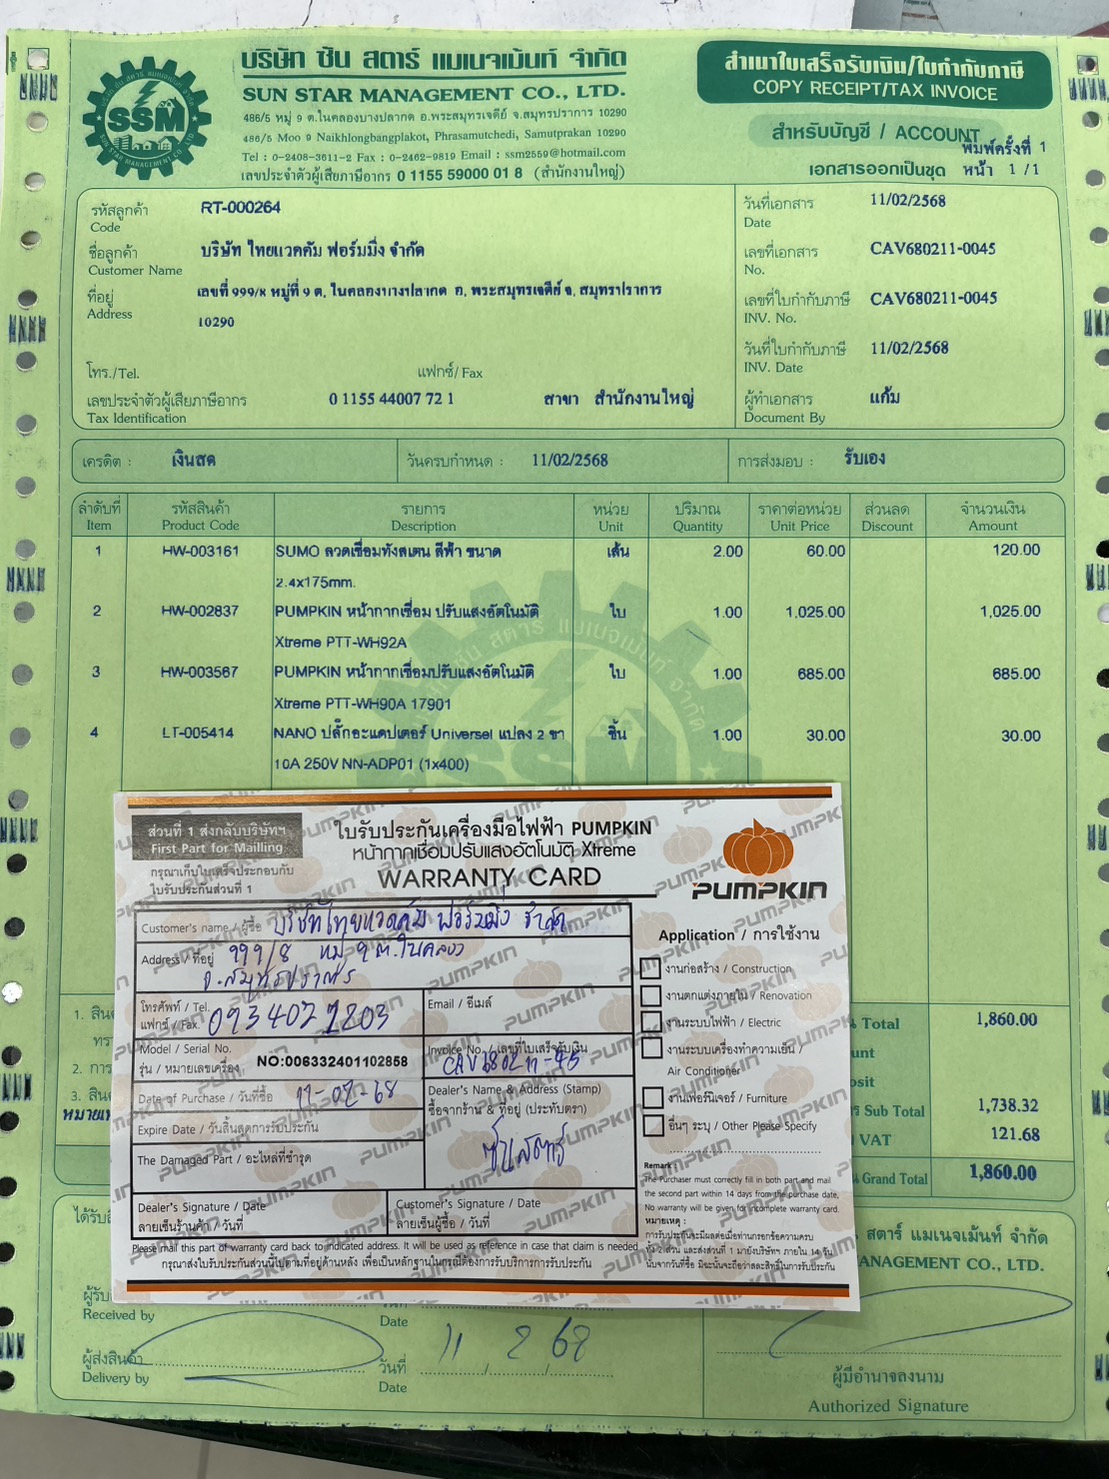 บริษัท ซัน สตาร์ แมเนจเม้นท์ จำกัด
SUN STAR MANAGEMENT CO., LTD.
486/5 หมู่ 9 ต.ในคลองบางปลากด อ.พระสมุทรเจดีย์ จ.สมุทรปราการ 10290
486/5 Moo 9 Naikhlongbangplakot, Phrasamutchedi, Samutprakan 10290
Tel : 0-2408-3611-2 Fax : 0-2462-9819 Email : ssm2559@hotmail.com
เลขประจำตัวผู้เสียภาษีอากร 0 1155 59000 01 8 (สำนักงานใหญ่)
SSM
SUN STAR MANAGEMENT CO., LTD.
สำเนาใบเสร็จรับเงิน/ใบกำกับภาษี
COPY RECEIPT/TAX INVOICE
สำหรับบัญชี / ACCOUNT
พิมพ์ครั้งที่ 1
เอกสารออกเป็นชุด หน้า 1 /1
รหัสลูกค้า RT-000264
Code
ชื่อลูกค้า บริษัท ไทยแวคคัม ฟอร์มมิ่ง จำกัด
Customer Name
ที่อยู่ เลขที่ 999/8 หมู่ที่ 9 ต. ในคลองบางปลากด อ. พระสมุทรเจดีย์ จ. สมุทรปราการ
Address
10290
โทร./Tel. แฟกซ์/ Fax
เลขประจำตัวผู้เสียภาษีอากร 0 1155 44007 72 1 สาขา สำนักงานใหญ่
Tax Identification
วันที่เอกสาร 11/02/2568
Date
เลขที่เอกสาร CAV680211-0045
No.
เลขที่ใบกำกับภาษี CAV680211-0045
INV. No.
วันที่ใบกำกับภาษี 11/02/2568
INV. Date
ผู้ทำเอกสาร แก้ม
Document By
เครดิต : เงินสด วันครบกำหนด : 11/02/2568 การส่งมอบ : รับเอง
ลำดับที่ รหัสสินค้า รายการ หน่วย ปริมาณ ราคาต่อหน่วย ส่วนลด จำนวนเงิน
Item Product Code Description Unit Quantity Unit Price Discount Amount
1 HW-003161 SUMO ลวดเชื่อมทังสเตน สีฟ้า ขนาด เส้น 2.00 60.00 120.00
2.4x175mm.
2 HW-002837 PUMPKIN หน้ากากเชื่อม ปรับแสงอัตโนมัติ ใบ 1.00 1,025.00 1,025.00
Xtreme PTT-WH92A
3 HW-003567 PUMPKIN หน้ากากเชื่อมปรับแสงอัตโนมัติ ใบ 1.00 685.00 685.00
Xtreme PTT-WH90A 17901
4 LT-005414 NANO ปลั๊กอะแดปเตอร์ Universel แปลง 2 ขา ชิ้น 1.00 30.00 30.00
10A 250V NN-ADP01 (1x400)
ส่วนที่ 1 ส่งกลับบริษัทฯ
First Part for Mailling
กรุณาเก็บใบเสร็จประกอบกับ
ใบรับประกันส่วนที่ 1
ใบรับประกันเครื่องมือไฟฟ้า PUMPKIN
หน้ากากเชื่อมปรับแสงอัตโนมัติ Xtreme
WARRANTY CARD
PUMPKIN
Customer's name / ผู้ซื้อ บริษัทไทยแวดคัม ฟอร์มมิ่ง จำกัด
Address / ที่อยู่ 999/8 หมู่ 9 ต.ในคลอง
จ.สมุทรปราการ
โทรศัพท์ / Tel.
แฟกซ์ / Fax. 0934022803
Email / อีเมล์
Model / Serial No.
รุ่น / หมายเลขเครื่อง NO:006332401102858
Invoice No. / เลขที่ใบเสร็จรับเงิน
CAV680211-45
Date of Purchase / วันที่ซื้อ 11-02-68
Dealer's Name & Address (Stamp)
ซื้อจากร้าน & ที่อยู่ (ประทับตรา)
ซันสตาร์
Expire Date / วันสิ้นสุดการรับประกัน
The Damaged Part / อะไหล่ที่ชำรุด
Dealer's Signature / Date
ลายเซ็นร้านค้า / วันที่
Customer's Signature / Date
ลายเซ็นผู้ซื้อ / วันที่
Please mail this part of warranty card back to indicated address. It will be used as reference in case that claim is needed
กรุณาส่งใบรับประกันส่วนนี้ไปตามที่อยู่ด้านหลัง เพื่อเป็นหลักฐานในกรณีต้องการรับบริการการรับประกัน
Application / การใช้งาน
งานก่อสร้าง / Construction
งานตกแต่งภายใน / Renovation
งานระบบไฟฟ้า / Electric
งานระบบเครื่องทำความเย็น /
Air Conditioner
งานเฟอร์นิเจอร์ / Furniture
อื่นๆ ระบุ / Other Please Specify
Remark
The Purchaser must correctly fill in both part and mail
the second part within 14 days from the purchase date,
No warranty will be given for incomplete warranty card.
หมายเหตุ :
การรับประกันจะมีผลต่อเมื่อท่านกรอกข้อความครบ
ทั้ง 2 ส่วน และส่งส่วนที่ 1 มายังบริษัทฯ ภายใน 14 วัน
นับจากวันที่ซื้อ มิฉะนั้นจะถือว่าสละสิทธิ์ในการรับประกัน
1. สินค้
2. การ
3. สินค้
หมายเหตุ
Total 1,860.00
Sub Total 1,738.32
VAT 121.68
Grand Total 1,860.00
สตาร์ แมเนจเม้นท์ จำกัด
ANAGEMENT CO., LTD.
ได้รับ
ผู้รับ
Received by
Date
ผู้ส่งสินค้า
Delivery by
วันที่ 11 2 68
Date
ผู้มีอำนาจลงนาม
Authorized Signature